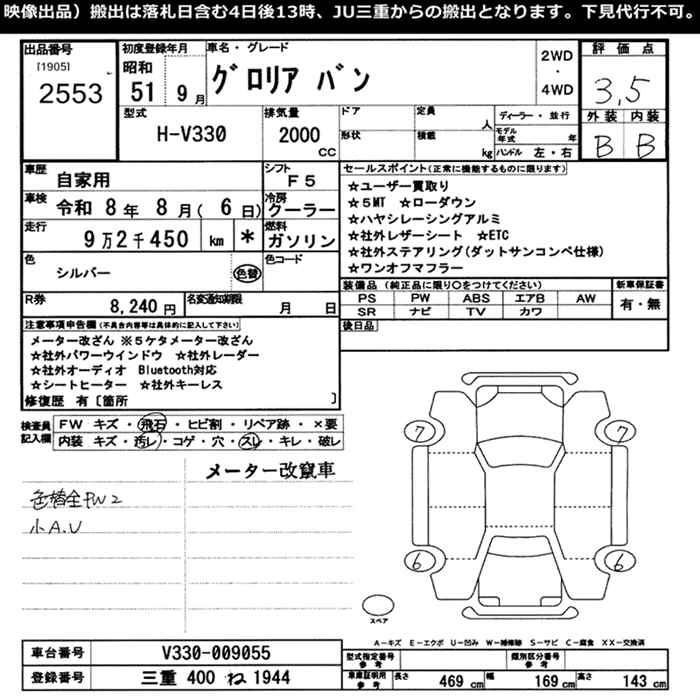 映像出品）搬出は落札日含む4日後13時、JU三重からの搬出となります。下見代行不可。
出品番号
[1905]
2553
初度登録年月
昭和
51 9 月
車名・グレード
グロリア バン
2WD
・
4WD
評価点
3,5
外装 内装
B B
型式
H-V330
排気量
2000
CC
ドア
形状
定員
人
積載
kg
ディーラー・並行
モデル年式 年
ハンドル 左・右
車歴
自家用
シフト
F5
車検
令和 8 年 8 月( 6 日)
冷房
クーラー
走行
9万2千450 km *
燃料
ガソリン
色
シルバー
色替
色コード
R券
8,240 円
名変通知期限
月 日
セールスポイント(正常に機能するものに限ります)
☆ユーザー買取り
☆5MT ☆ローダウン
☆ハヤシレーシングアルミ
☆社外レザーシート ☆ETC
☆社外ステアリング(ダットサンコンペ仕様)
☆ワンオフマフラー
装備品(純正品に限り〇をつけてください)
PS PW ABS エアB AW
SR ナビ TV カワ
新車保証書
有・無
後日品
注意事項申告欄(不具合内容等は具体的に記入して下さい)
メーター改ざん ※5ケタメーター改ざん
☆社外パワーウインドウ ☆社外レーダー
☆社外オーディオ Bluetooth対応
☆シートヒーター ☆社外キーレス
修復歴 有〔箇所 〕
検査員記入欄
FW キズ・飛石・ヒビ割・リペア跡・×要
内装 キズ・汚レ・コゲ・穴・スレ・キレ・破レ
メーター改竄車
色替全PW2
小A.U
7 7
6 6
スペア
A-キズ E-エクボ U-凹み W-補修跡 S-サビ C-腐食 XX-交換済
車台番号 V330-009055
登録番号 三重 400 ね 1944
型式指定番号
参考
類別区分番号
参考
車庫証明用
参考
長さ 469 cm 幅 169 cm 高さ 143 cm